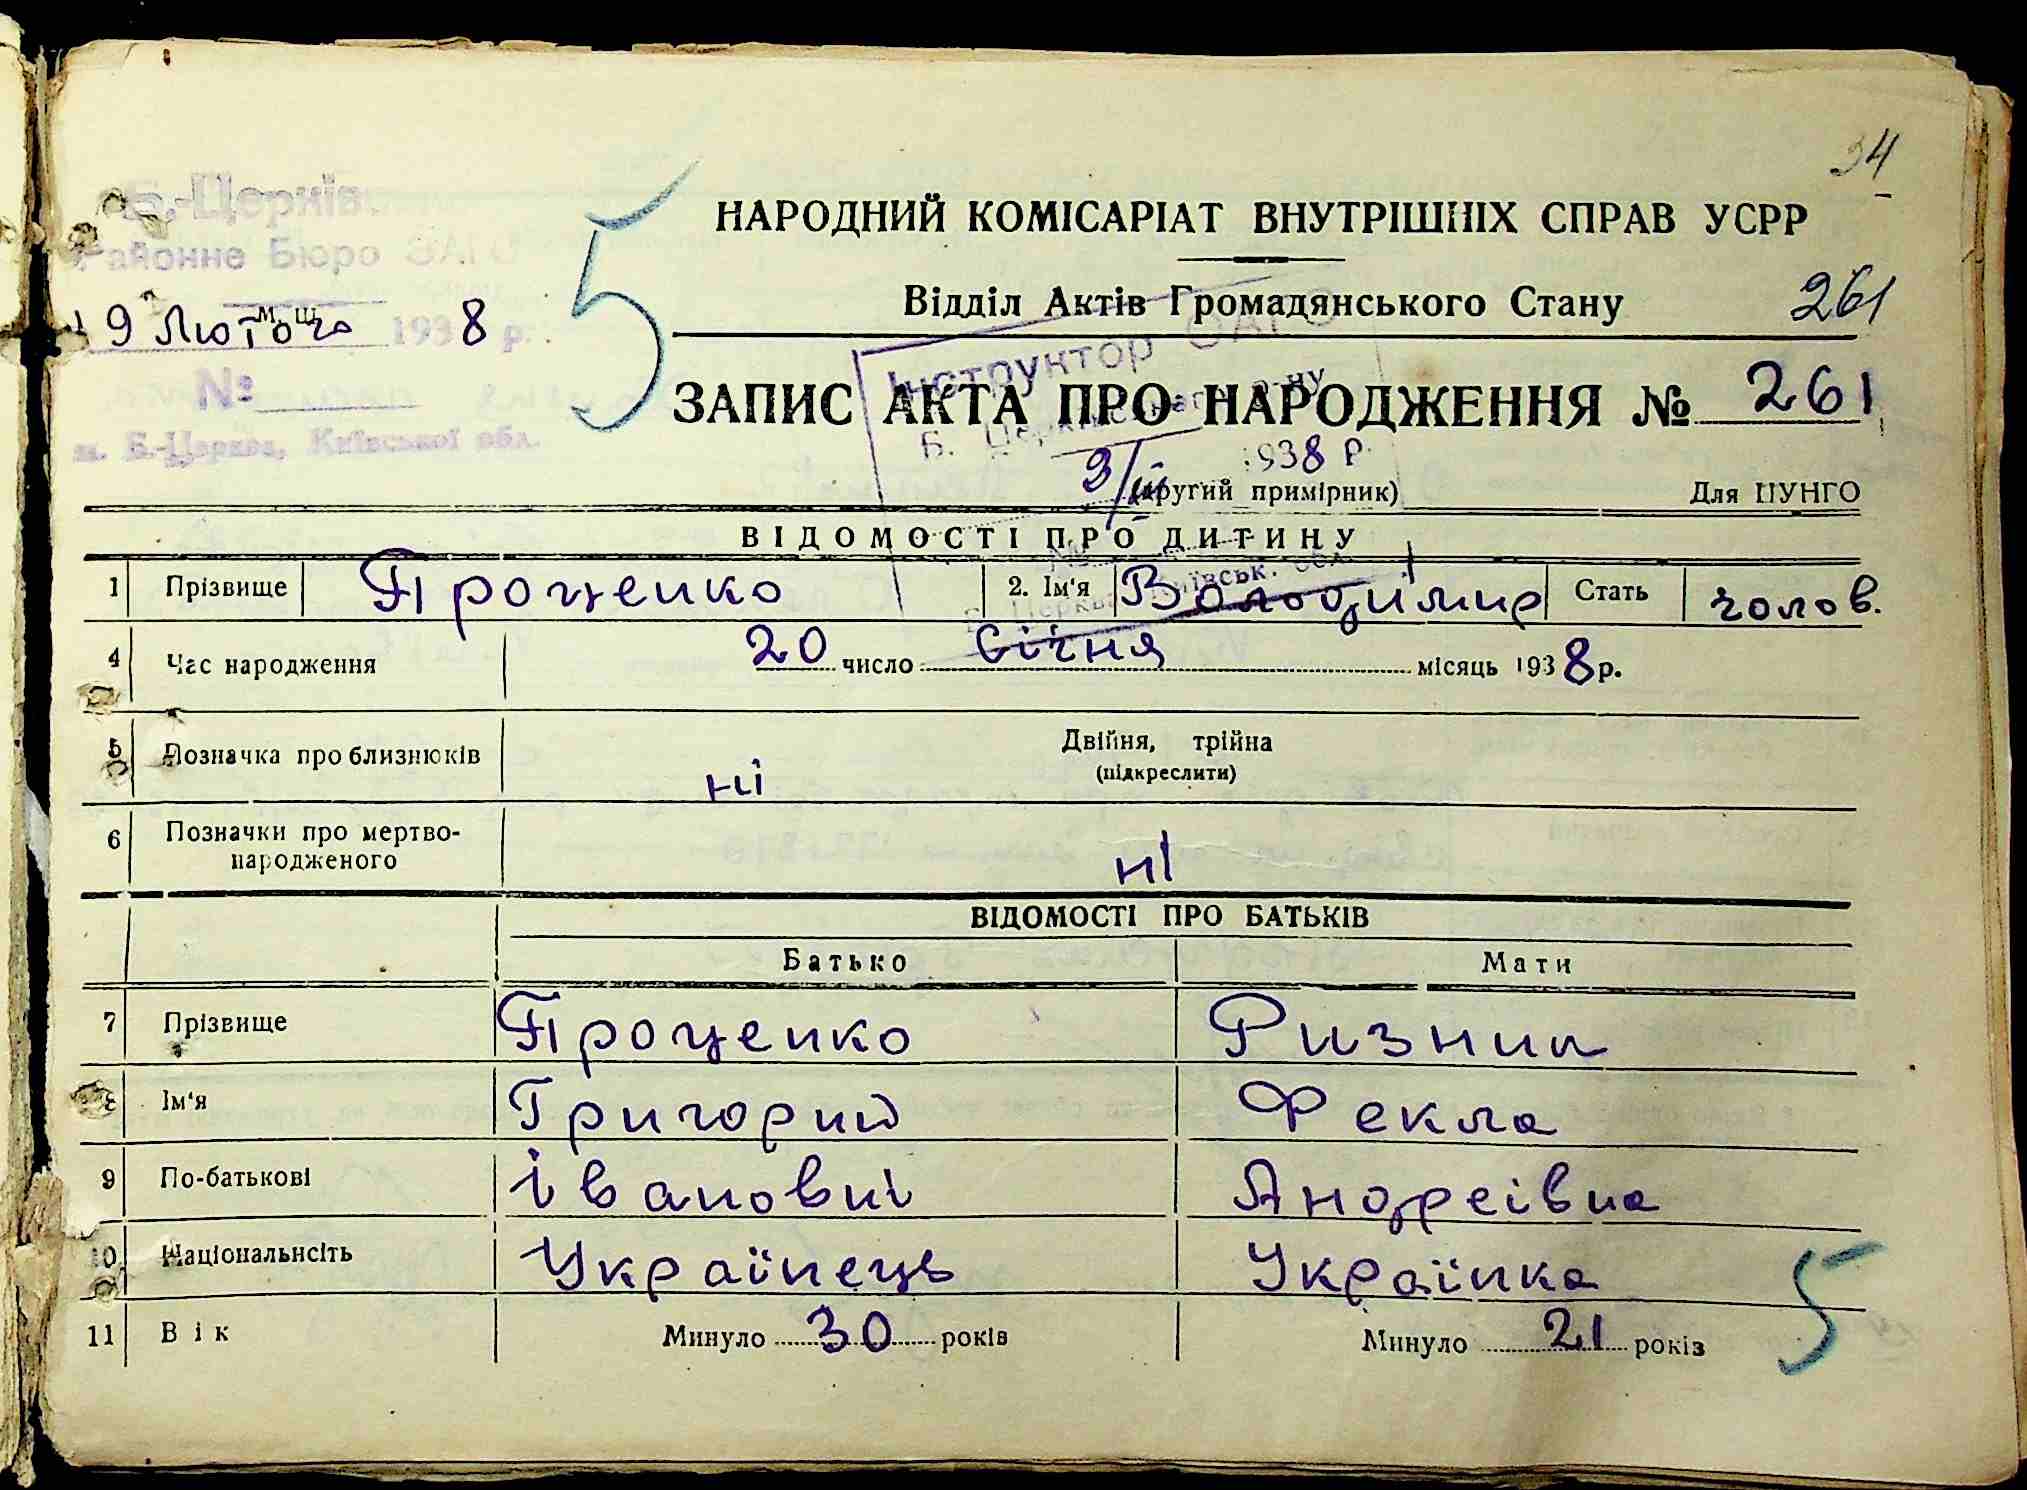 34
Б.-Церків.
Районне Бюро ЗАГС
НАРОДНИЙ КОМІСАРІАТ ВНУТРІШНІХ СПРАВ УСРР
5
Відділ Актів Громадянського Стану
261
9 Лютого 1938 р.
Інструктор ЗАГС
№
ЗАПИС АКТА ПРО НАРОДЖЕННЯ № 261
м. Б.-Церква, Київської обл.
3/III 1938 р.
(другий примірник) Для ЦУНГО
ВІДОМОСТІ ПРО ДИТИНУ
1 Прізвище Проценко 2. Ім'я Володимир Стать чолов.
4 Час народження 20 число Січня місяць 1938 р.
5 Позначка про близнюків ні Двійня, трійна
(підкреслити)
6 Позначки про мертво-
народженого ні
ВІДОМОСТІ ПРО БАТЬКІВ
Батько Мати
7 Прізвище Проценко Ризнич
8 Ім'я Григорий Фекла
9 По-батькові Івановиі Андреівна
10 Національність Українець Українка
5
11 Вік Минуло 30 років Минуло 21 років